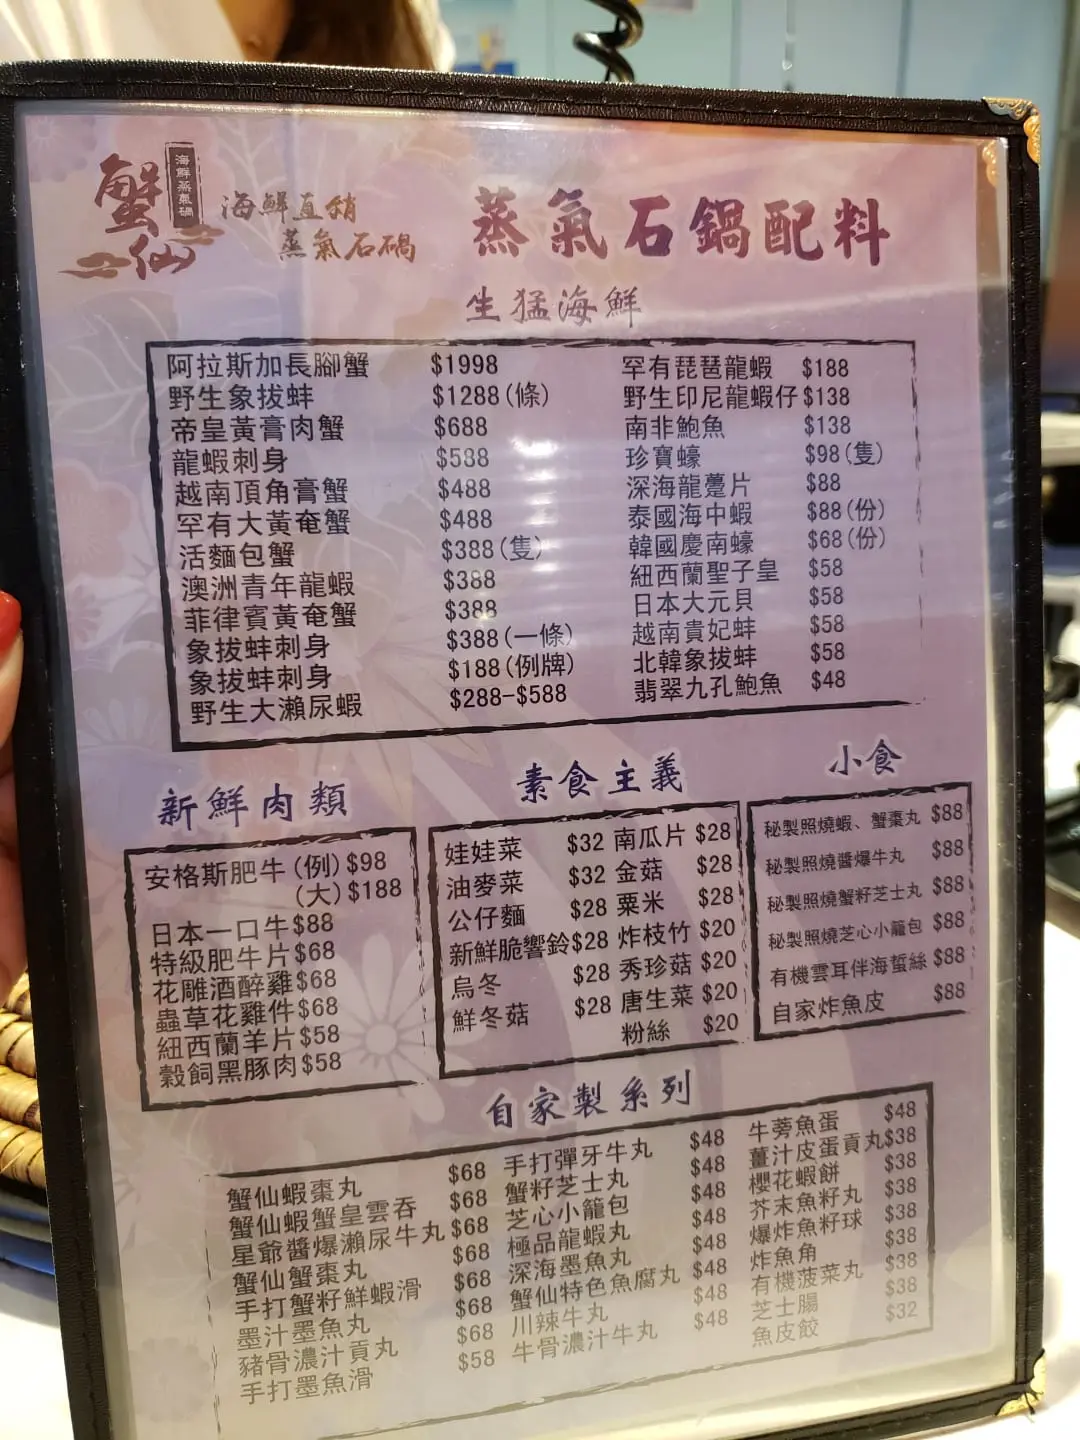 蟹仙
海鮮蒸氣鍋
海鮮直銷
蒸氣石鍋
蒸氣石鍋配料
生猛海鮮
阿拉斯加長腳蟹 $1998
野生象拔蚌 $1288(條)
帝皇黃膏肉蟹 $688
龍蝦刺身 $588
越南頂角膏蟹 $488
罕有大黃奄蟹 $488
活麵包蟹 $388(隻)
澳洲青年龍蝦 $388
菲律賓黃奄蟹 $388
象拔蚌刺身 $388(一條)
象拔蚌刺身 $188(例牌)
野生大瀨尿蝦 $288-$588
罕有琵琶龍蝦 $188
野生印尼龍蝦仔 $138
南非鮑魚 $138
珍寶蠔 $98(隻)
深海龍躉片 $88
泰國海中蝦 $88(份)
韓國慶南蠔 $68(份)
紐西蘭聖子皇 $58
日本大元貝 $58
越南貴妃蚌 $58
北韓象拔蚌 $58
翡翠九孔鮑魚 $48
新鮮肉類
安格斯肥牛(例)$98
(大)$188
日本一口牛$88
特級肥牛片$68
花雕酒醉雞$68
蟲草花雞件$68
紐西蘭羊片$58
穀飼黑豚肉$58
素食主義
娃娃菜 $32
油麥菜 $32
公仔麵 $28
新鮮脆響鈴$28
烏冬 $28
鮮冬菇 $28
南瓜片 $28
金菇 $28
粟米 $28
炸枝竹 $20
秀珍菇 $20
唐生菜 $20
粉絲 $20
小食
秘製照燒蝦、蟹棗丸 $88
秘製照燒醬爆牛丸 $88
秘製照燒蟹籽芝士丸 $88
秘製照燒芝心小籠包 $88
有機雲耳伴海蜇絲 $88
自家炸魚皮 $88
自家製系列
蟹仙蝦棗丸 $68
蟹仙蝦蟹皇雲吞 $68
星爺醬爆瀨尿牛丸 $68
蟹仙蟹棗丸 $68
手打蟹籽鮮蝦滑 $68
墨汁墨魚丸 $68
豬骨濃汁貢丸 $68
手打墨魚滑 $58
手打彈牙牛丸 $48
蟹籽芝士丸 $48
芝心小籠包 $48
極品龍蝦丸 $48
深海墨魚丸 $48
蟹仙特色魚腐丸 $48
川辣牛丸 $48
牛骨濃汁牛丸 $48
牛蒡魚蛋 $48
薑汁皮蛋貢丸 $38
櫻花蝦餅 $38
芥末魚籽丸 $38
爆炸魚籽球 $38
炸魚角 $38
有機菠菜丸 $38
芝士腸 $38
魚皮餃 $32